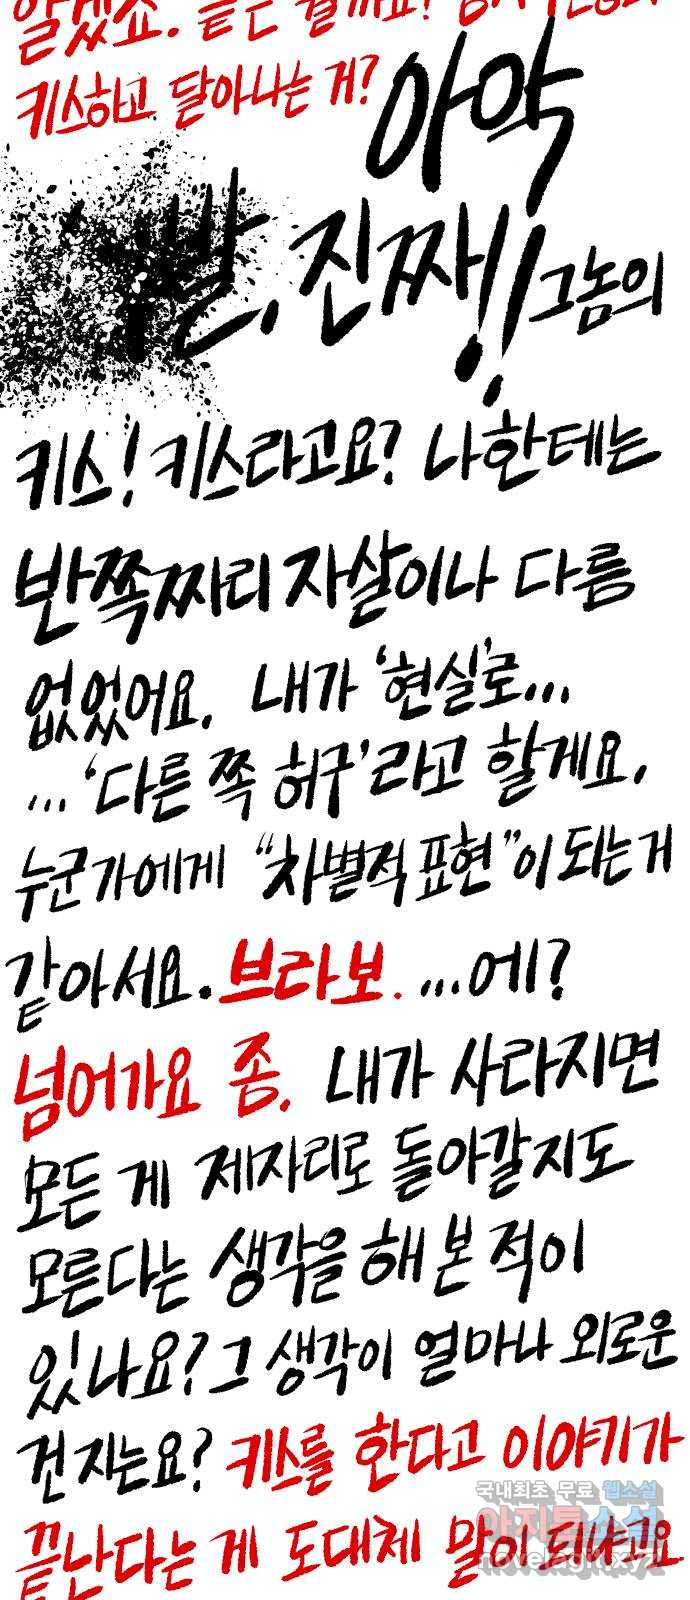 알겠죠. 끝은 뭘까요?
키스하고 달아나는 거?
아악
발, 진짜!! 그놈의
키스! 키스라고요? 나한테는
반쪽짜리 자살이나 다름
없었어요. 내가 '현실'로...
...'다른 쪽 허구'라고 할게요.
누군가에게 "차별적 표현"이 되는 거
같아서요. 브라보. ...에?
넘어가요 좀. 내가 사라지면
모든 게 제자리로 돌아갈지도
모른다는 생각을 해 본 적이
있나요? 그 생각이 얼마나 외로운
건지는요? 키스를 한다고 이야기가
끝난다는 게 도대체 말이 되냐고요
국내최초 무료 웹소설
아지툰소설
novelagit.xyz